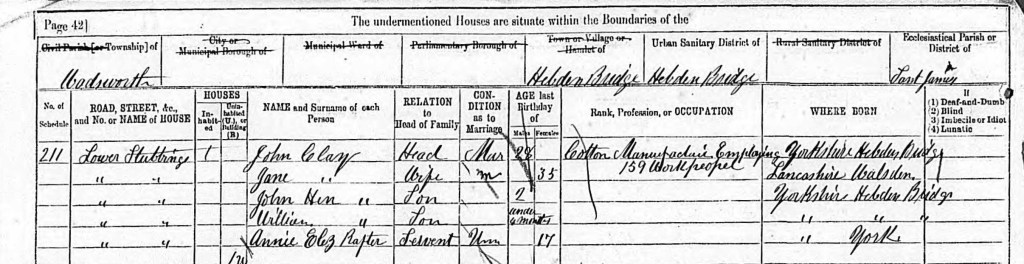 Page 42]
The undermentioned Houses are situate within the Boundaries of the
Civil Parish [or Township] of
City or Municipal Borough of
Municipal Ward of
Parliamentary Borough of
Town or Village or Hamlet of
Urban Sanitary District of
Rural Sanitary District of
Ecclesiastical Parish or District of
Wadsworth Hebden Bridge Hebden Bridge Saint James
No. of Schedule
ROAD, STREET, &c., and No. or NAME of HOUSE
HOUSES
Inhabited
Uninhabited (U.), or Building (B.)
NAME and Surname of each Person
RELATION to Head of Family
CONDITION as to Marriage
AGE last Birthday of
Males
Females
Rank, Profession, or OCCUPATION
WHERE BORN
If
(1) Deaf-and-Dumb
(2) Blind
(3) Imbecile or Idiot
(4) Lunatic
211 Lower Stubbings 1 John Clay Head Mar 28 Cotton Manufactuir Employing Yorkshire Hebden Bridge
159 Workpeopel
" " Jane " Wife m 35 Lancashire Walsden
" " John Hen " Son 2 Yorkshire Hebden Bridge
" " William " Son under months " " "
" " Annie Eliz Rafter Servent Unm 17 " York